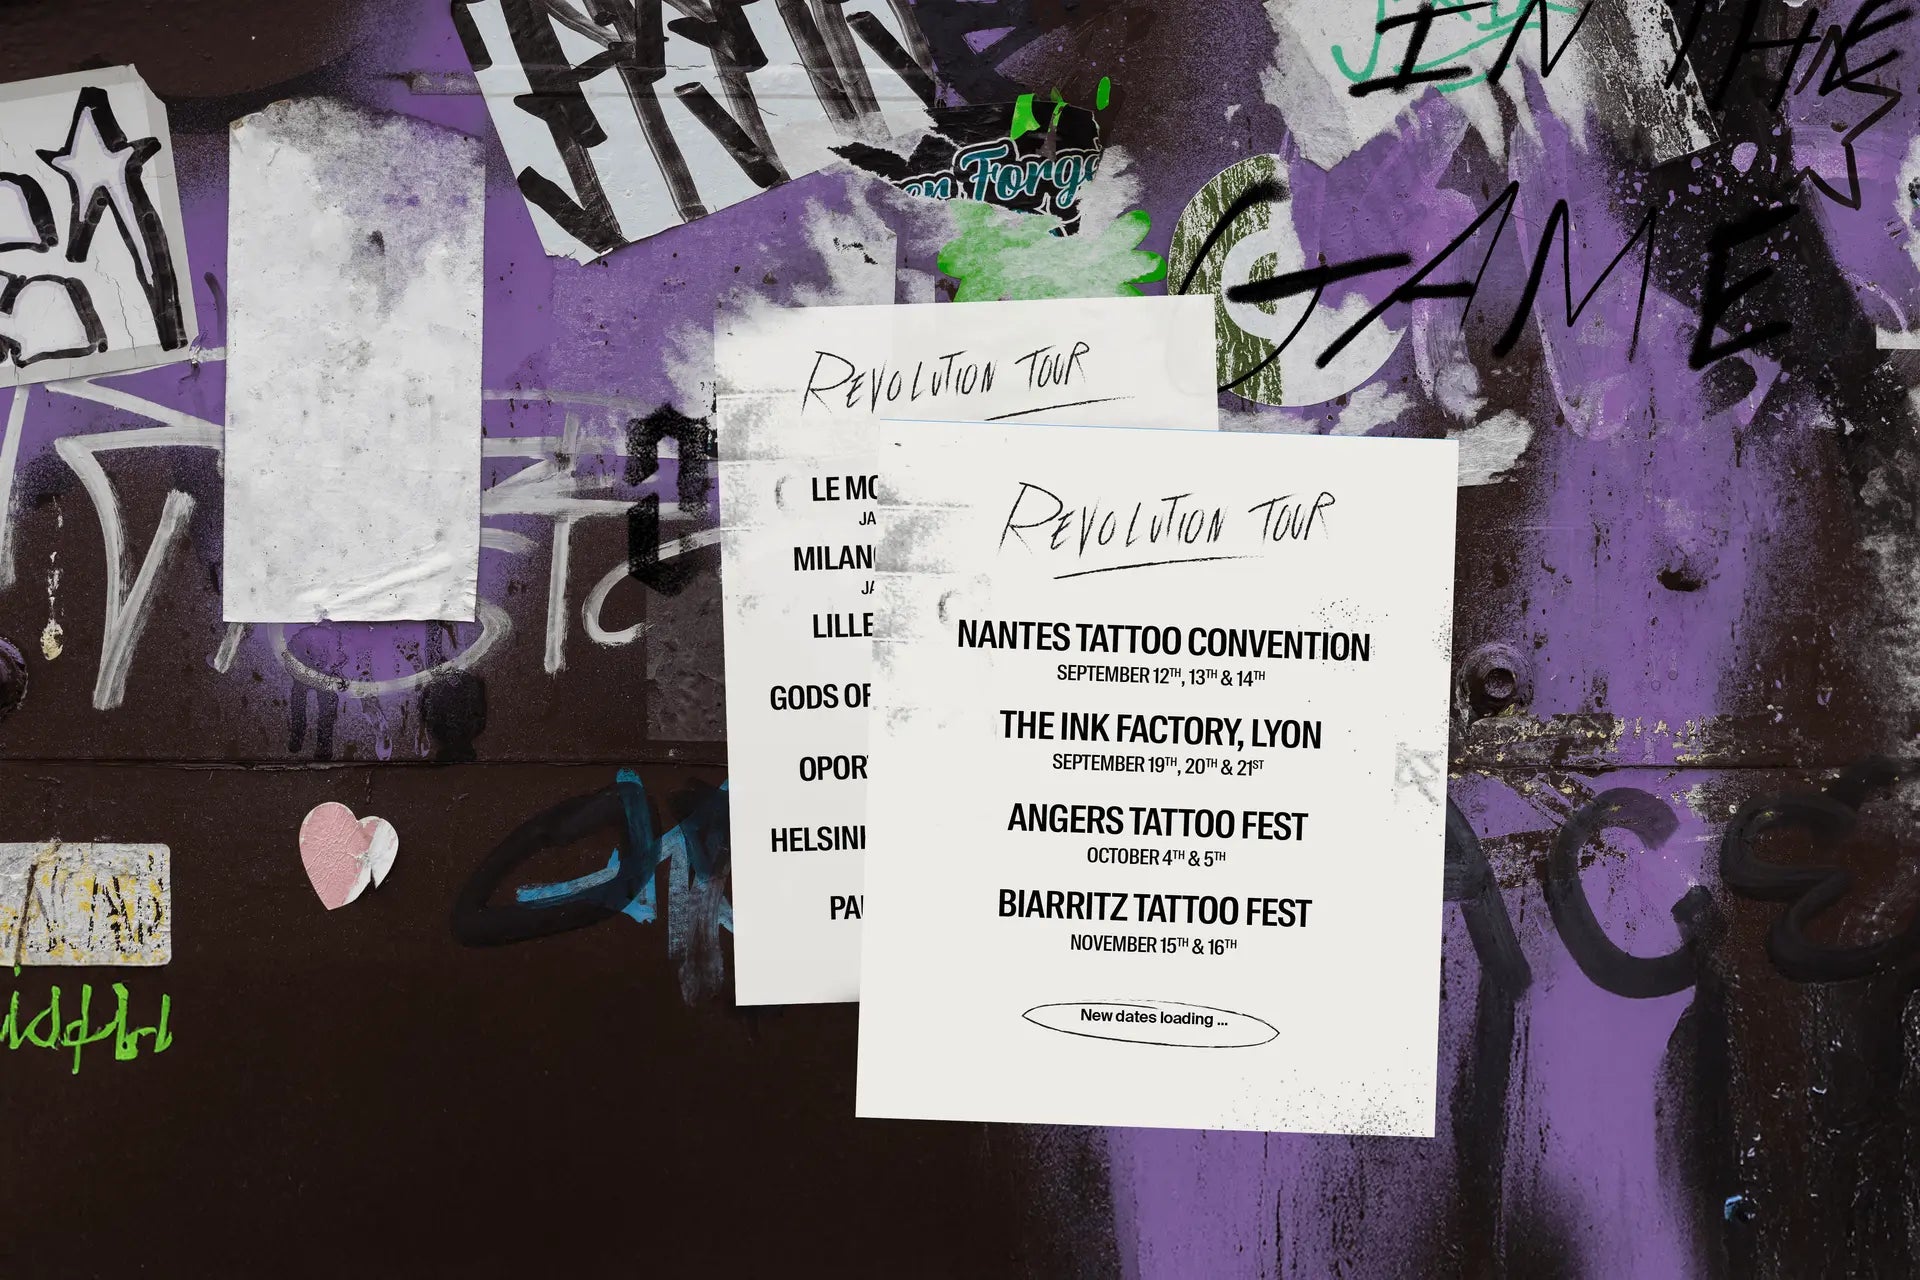 IN THE
GAME
Forge
REVOLUTION TOUR
LE MO
JA
MILAN
JA
LILLE
GODS OF
OPOR
HELSIN
PA
REVOLUTION TOUR
NANTES TATTOO CONVENTION
SEPTEMBER 12TH, 13TH & 14TH
THE INK FACTORY, LYON
SEPTEMBER 19TH, 20TH & 21ST
ANGERS TATTOO FEST
OCTOBER 4TH & 5TH
BIARRITZ TATTOO FEST
NOVEMBER 15TH & 16TH
New dates loading ...